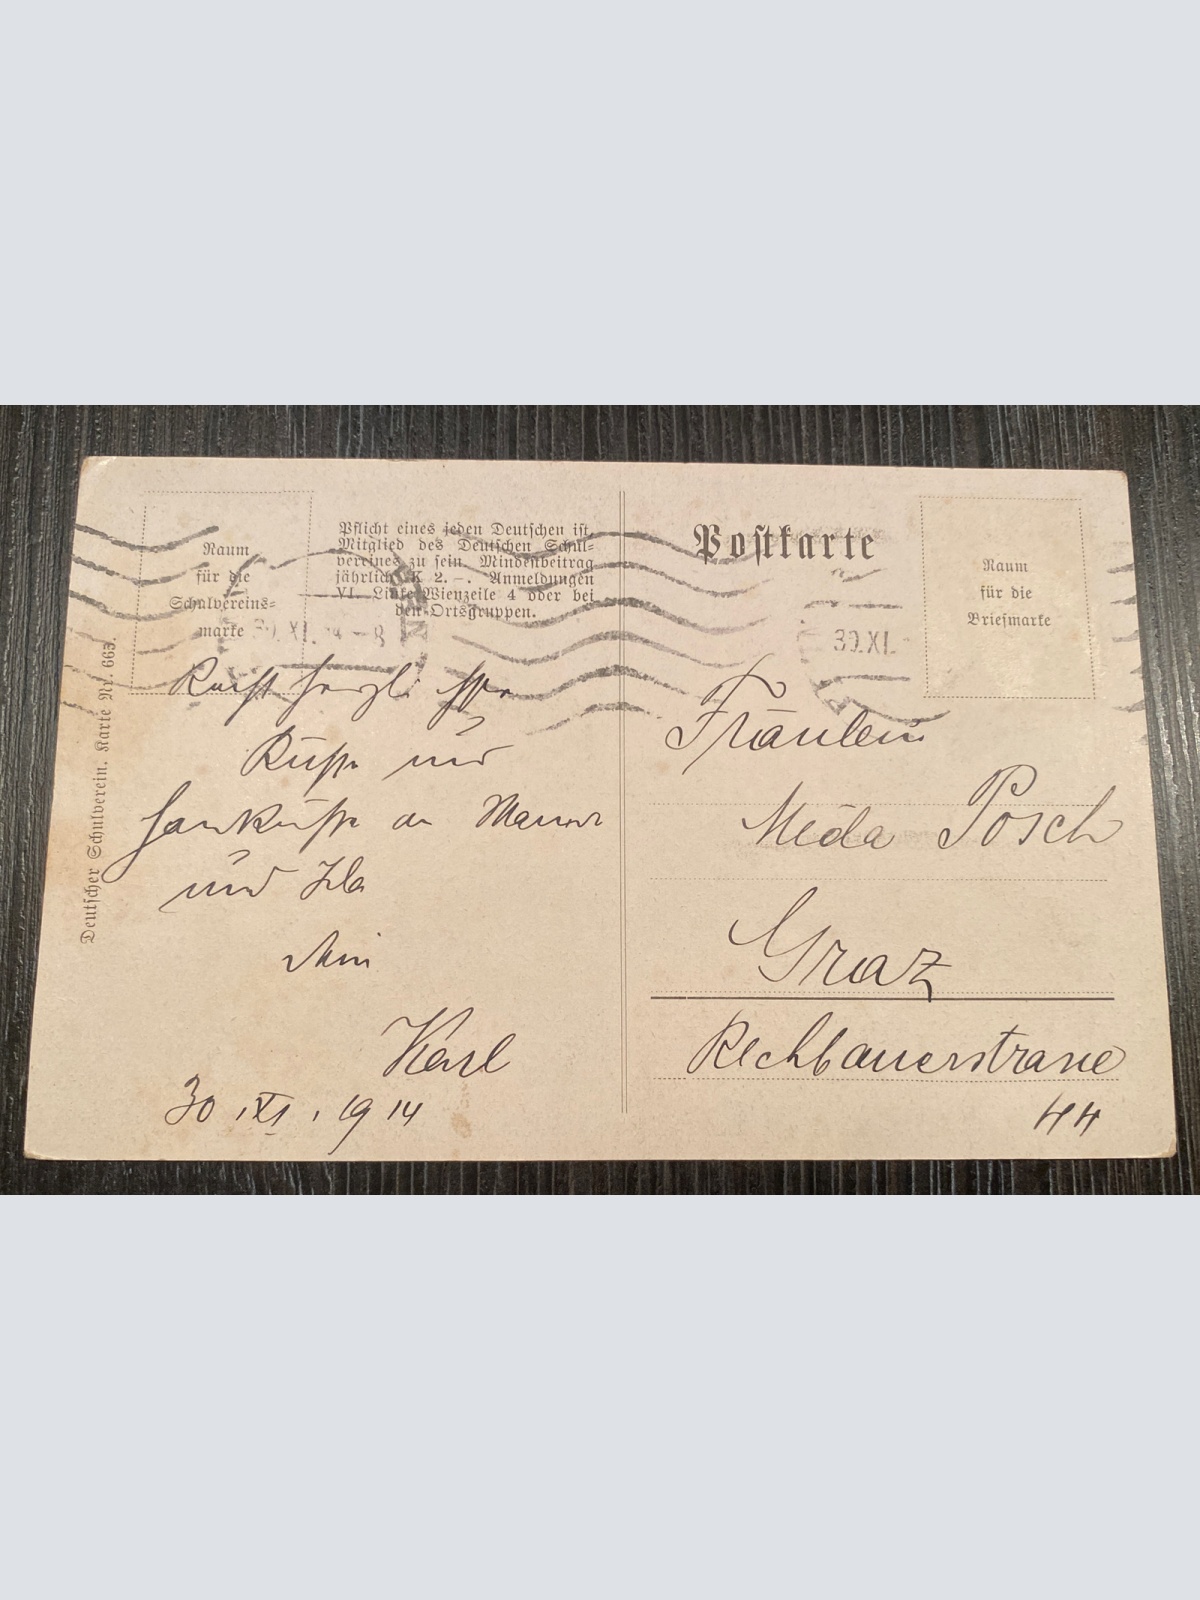 Raum
für die
Schulvereins=
marke
Pflicht eines jeden Deutschen ist,
Mitglied des Deutschen Schul=
vereines zu sein. Mindestbeitrag
jährlich K 2.–. Anmeldungen
VI. Linke Wienzeile 4 oder bei
den Ortsgruppen.
30.XI. 14-8
Deutscher Schulverein. Karte Nr. 663.
Recht herzl.
Küsse und
Handküsse an Mama
und Ida
Dein
Karl
30.XI.1914
Postkarte
Raum
für die
Briefmarke
30.XI.
Fräulein
Meda Posch
Graz
Rechbauerstrasse
44